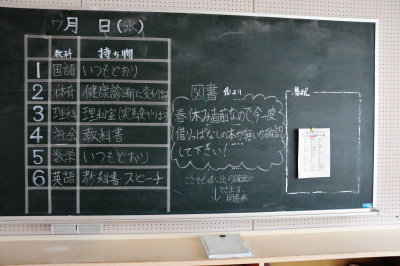 7月 日(水)
教科 持ち物
1 国語 いつもどおり
2 体育 健康診断に変わります
3 理科 理科室(実験やります
4 社会 教科書
5 数学 いつもどおり
6 英語 教科書・スピーチ
図書 便より
春休み直前なので今一度
借りっぱなしの本が無いか確認
して下さい!
できます。
図書委